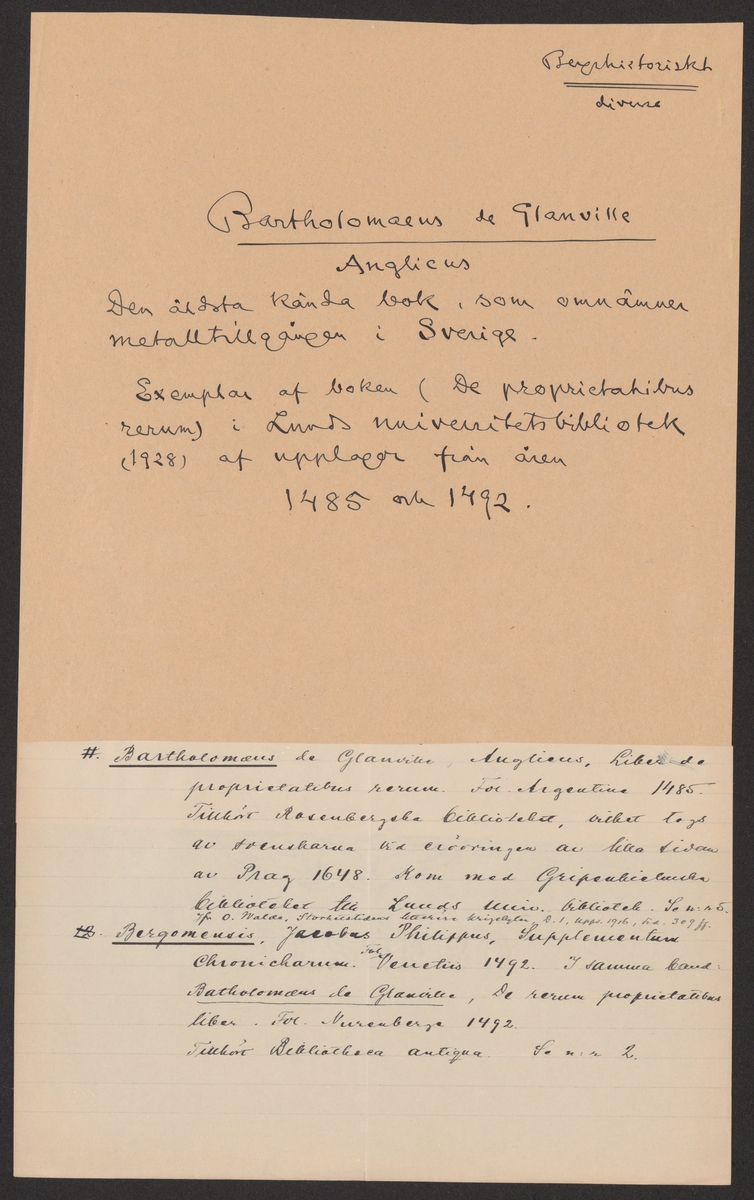 Bergshistoriskt
diverse
Bartholomaeus de Glanville
Anglicus
Den äldsta kända bok, som omnämner
metalltillgången i Sverige.
Exemplar af boken (De proprietatibus
rerum) i Lunds universitetsbibliotek
(1928) af upplagor från åren
1485 och 1492.
#. Bartholomæus de Glanville, Anglicus, Liber de
proprietatibus rerum. Fol. Argentine 1485.
Tillhört Rosenbergska biblioteket, vilket togs
av svenskarna vid erövringen av lilla sidan
av Prag 1648. Kom med Gripenhielmska
biblioteket till Lunds Univ. bibliotek. Se n:r 5.
Jfr O. Walde, Storhetstidens litterära krigsbyten, D. 1, Upps. 1916, sid. 309 ff.
Bergomensis, Jacobus Philippus, Supplementum
Chronicharum. Fol. Venetiis 1492. I samma band:
Batholomæus de Glanville, De rerum proprietatibus
liber. Fol. Nurenberge 1492.
Tillhört Bibliotheca antiqua. Se n:r 2.